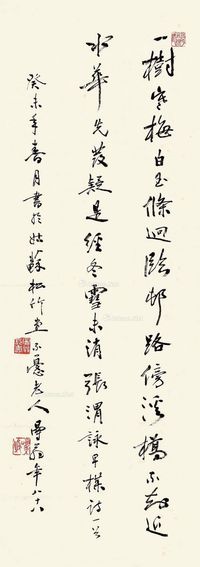 一樹寒梅白玉條迥臨邨路傍溪橋不知近
水華先發疑是經冬雪未消張渭詠早楳詩一首
癸未年春月書於姑蘇松竹不憂老人年八十八